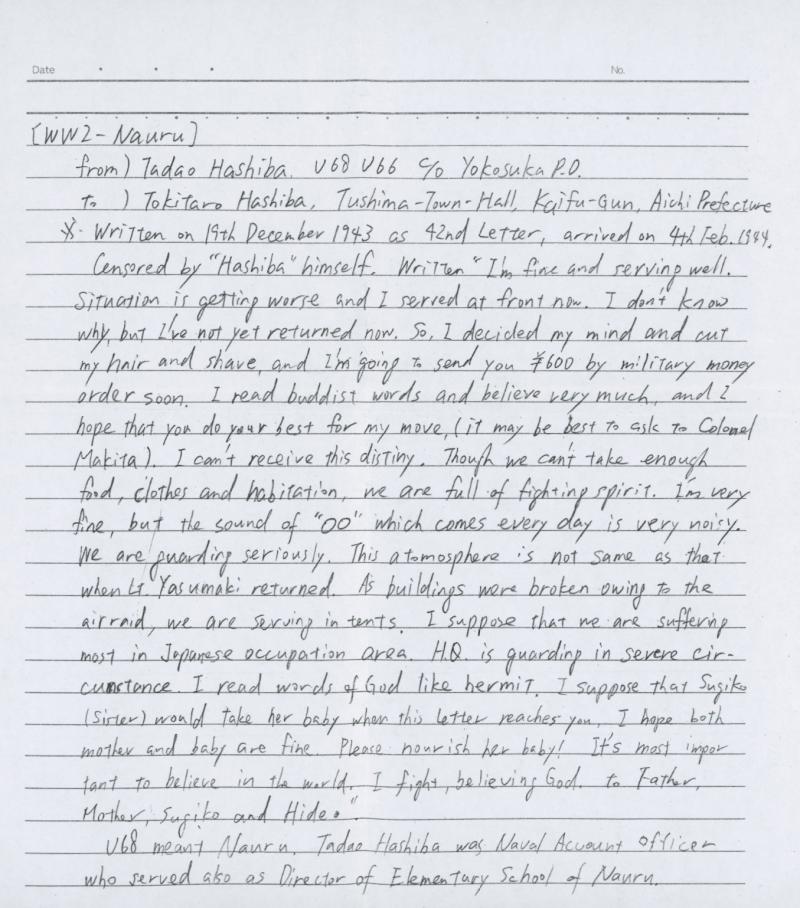 Date No.
[WW2-Nauru]
from) Tadao Hashiba. U68 U66 c/o Yokosuka P.O.
to ) Tokitaro Hashiba, Tushima-Town-Hall, Kaifu-Gun, Aichi Prefecture
※· Written on 19th December 1943 as 42nd Letter, arrived on 4th Feb. 1944.
Censored by "Hashiba" himself. Written "I'm fine and serving well.
Situation is getting worse and I served at front now. I don't know
why, but I've not yet returned now. So, I decided my mind and cut
my hair and shave, and I'm going to send you ¥600 by military money
order soon. I read buddist words and believe very much, and I
hope that you do your best for my move, (it may be best to ask to Colonel
Makita). I can't receive this distiny. Though we can't take enough
food, clothes and habitation, we are full of fighting spirit. I'm very
fine, but the sound of "OO" which comes every day is very noisy.
We are guarding seriously. This atomosphere is not same as that
when Lt Yasumaki returned. As buildings were broken owing to the
airraid, we are serving in tents. I suppose that we are suffering
most in Japanese occupation area. H.Q. is guarding in severe cir-
cumstance. I read words of God like hermit. I suppose that Sugiko
(sister) would take her baby when this letter reaches you. I hope both
mother and baby are fine. Please nourish her baby! It's most impor
tant to believe in the world. I fight, believing God. to Father,
Mother, Sugiko and Hideo".
U68 meant Nauru. Tadao Hashiba was Naval Account Officer
who served also as Director of Elementary School of Nauru.